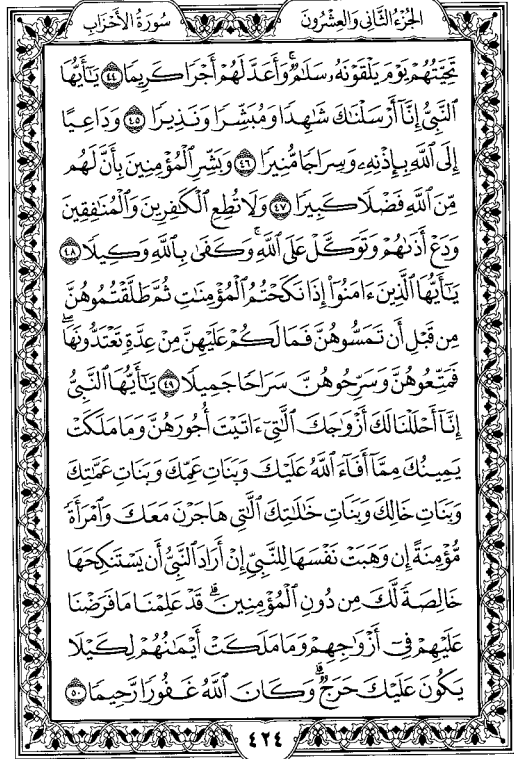 الجزء الثاني والعشرون
سورة الأحزاب
تَحِيَّتُهُمْ يَوْمَ يَلْقَوْنَهُۥ سَلَٰمٌ ۚ وَأَعَدَّ لَهُمْ أَجْرًا كَرِيمًا ٤٤ يَٰٓأَيُّهَا
ٱلنَّبِىُّ إِنَّآ أَرْسَلْنَٰكَ شَٰهِدًا وَمُبَشِّرًا وَنَذِيرًا ٤٥ وَدَاعِيًا
إِلَى ٱللَّهِ بِإِذْنِهِۦ وَسِرَاجًا مُّنِيرًا ٤٦ وَبَشِّرِ ٱلْمُؤْمِنِينَ بِأَنَّ لَهُم
مِّنَ ٱللَّهِ فَضْلًا كَبِيرًا ٤٧ وَلَا تُطِعِ ٱلْكَٰفِرِينَ وَٱلْمُنَٰفِقِينَ
وَدَعْ أَذَىٰهُمْ وَتَوَكَّلْ عَلَى ٱللَّهِ ۚ وَكَفَىٰ بِٱللَّهِ وَكِيلًا ٤٨
يَٰٓأَيُّهَا ٱلَّذِينَ ءَامَنُوٓا۟ إِذَا نَكَحْتُمُ ٱلْمُؤْمِنَٰتِ ثُمَّ طَلَّقْتُمُوهُنَّ
مِن قَبْلِ أَن تَمَسُّوهُنَّ فَمَا لَكُمْ عَلَيْهِنَّ مِنْ عِدَّةٍ تَعْتَدُّونَهَا ۖ
فَمَتِّعُوهُنَّ وَسَرِّحُوهُنَّ سَرَاحًا جَمِيلًا ٤٩ يَٰٓأَيُّهَا ٱلنَّبِىُّ
إِنَّآ أَحْلَلْنَا لَكَ أَزْوَٰجَكَ ٱلَّٰتِىٓ ءَاتَيْتَ أُجُورَهُنَّ وَمَا مَلَكَتْ
يَمِينُكَ مِمَّآ أَفَآءَ ٱللَّهُ عَلَيْكَ وَبَنَاتِ عَمِّكَ وَبَنَاتِ عَمَّٰتِكَ
وَبَنَاتِ خَالِكَ وَبَنَاتِ خَٰلَٰتِكَ ٱلَّٰتِى هَاجَرْنَ مَعَكَ وَٱمْرَأَةً
مُّؤْمِنَةً إِن وَهَبَتْ نَفْسَهَا لِلنَّبِىِّ إِنْ أَرَادَ ٱلنَّبِىُّ أَن يَسْتَنكِحَهَا
خَالِصَةً لَّكَ مِن دُونِ ٱلْمُؤْمِنِينَ ۗ قَدْ عَلِمْنَا مَا فَرَضْنَا
عَلَيْهِمْ فِىٓ أَزْوَٰجِهِمْ وَمَا مَلَكَتْ أَيْمَٰنُهُمْ لِكَيْلَا
يَكُونَ عَلَيْكَ حَرَجٌ ۗ وَكَانَ ٱللَّهُ غَفُورًا رَّحِيمًا ٥٠
٤٢٤